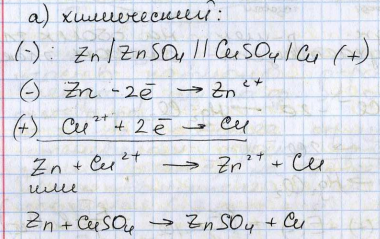 а) химический:
(-): Zn | ZnSO₄ || CuSO₄ | Cu (+)
(-) Zn - 2ē → Zn²⁺
(+) Cu²⁺ + 2ē → Cu
Zn + Cu²⁺ → Zn²⁺ + Cu
или
Zn + CuSO₄ → ZnSO₄ + Cu